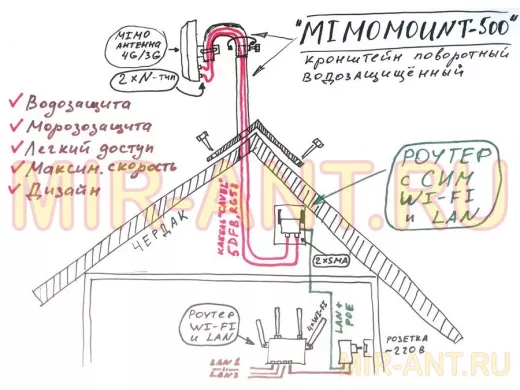 "MIMOMOUNT-500"
кронштейн поворотный
водозащищённый
MIMO
АНТЕННА
4G/3G
2×N-тип
✓ Водозащита
✓ Морозозащита
✓ Легкий доступ
✓ Максим. скорость
✓ Дизайн
РОУТЕР
С СИМ
WI-FI
и LAN
MIR-ANT.RU
ЧЕРДАК
КАБЕЛЬ "CAVEL"
5DFB, RG58
2×SMA
РОУТЕР
WI-FI
и LAN
4×WI-FI
LAN+
POE
РОЗЕТКА
~220В
LAN1
MIR-ANT.RU